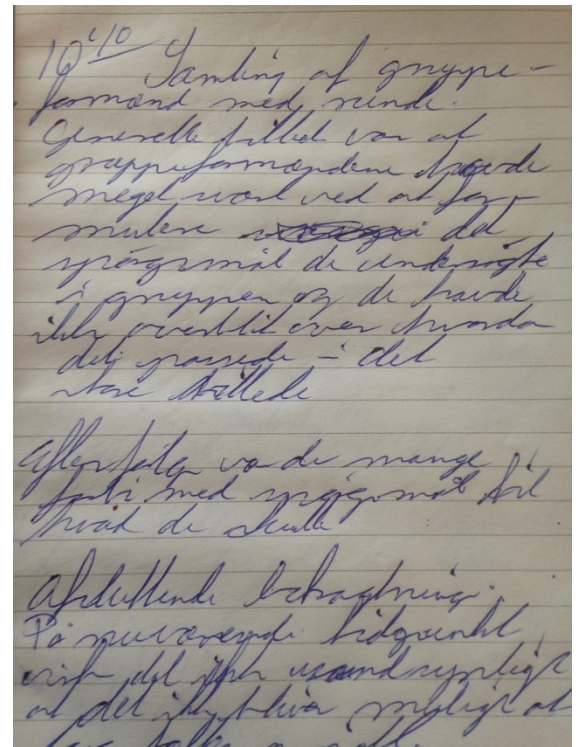 10'10 Samling af gruppe-
formænd med runde.
Generelle billed var at
gruppeformændene havde
meget svært ved at for-
mulere det
spørgsmål de undersøgte
i gruppen og de havde
ikke overblik over hvordan
det passede i det
store billede
Efter va de mange
forbi med spørgsmål til
hvad de skulle
Afsluttende betragtning.
På nuværende tidspunkt
det ikke usandsynligt
at det ikke bliver muligt at